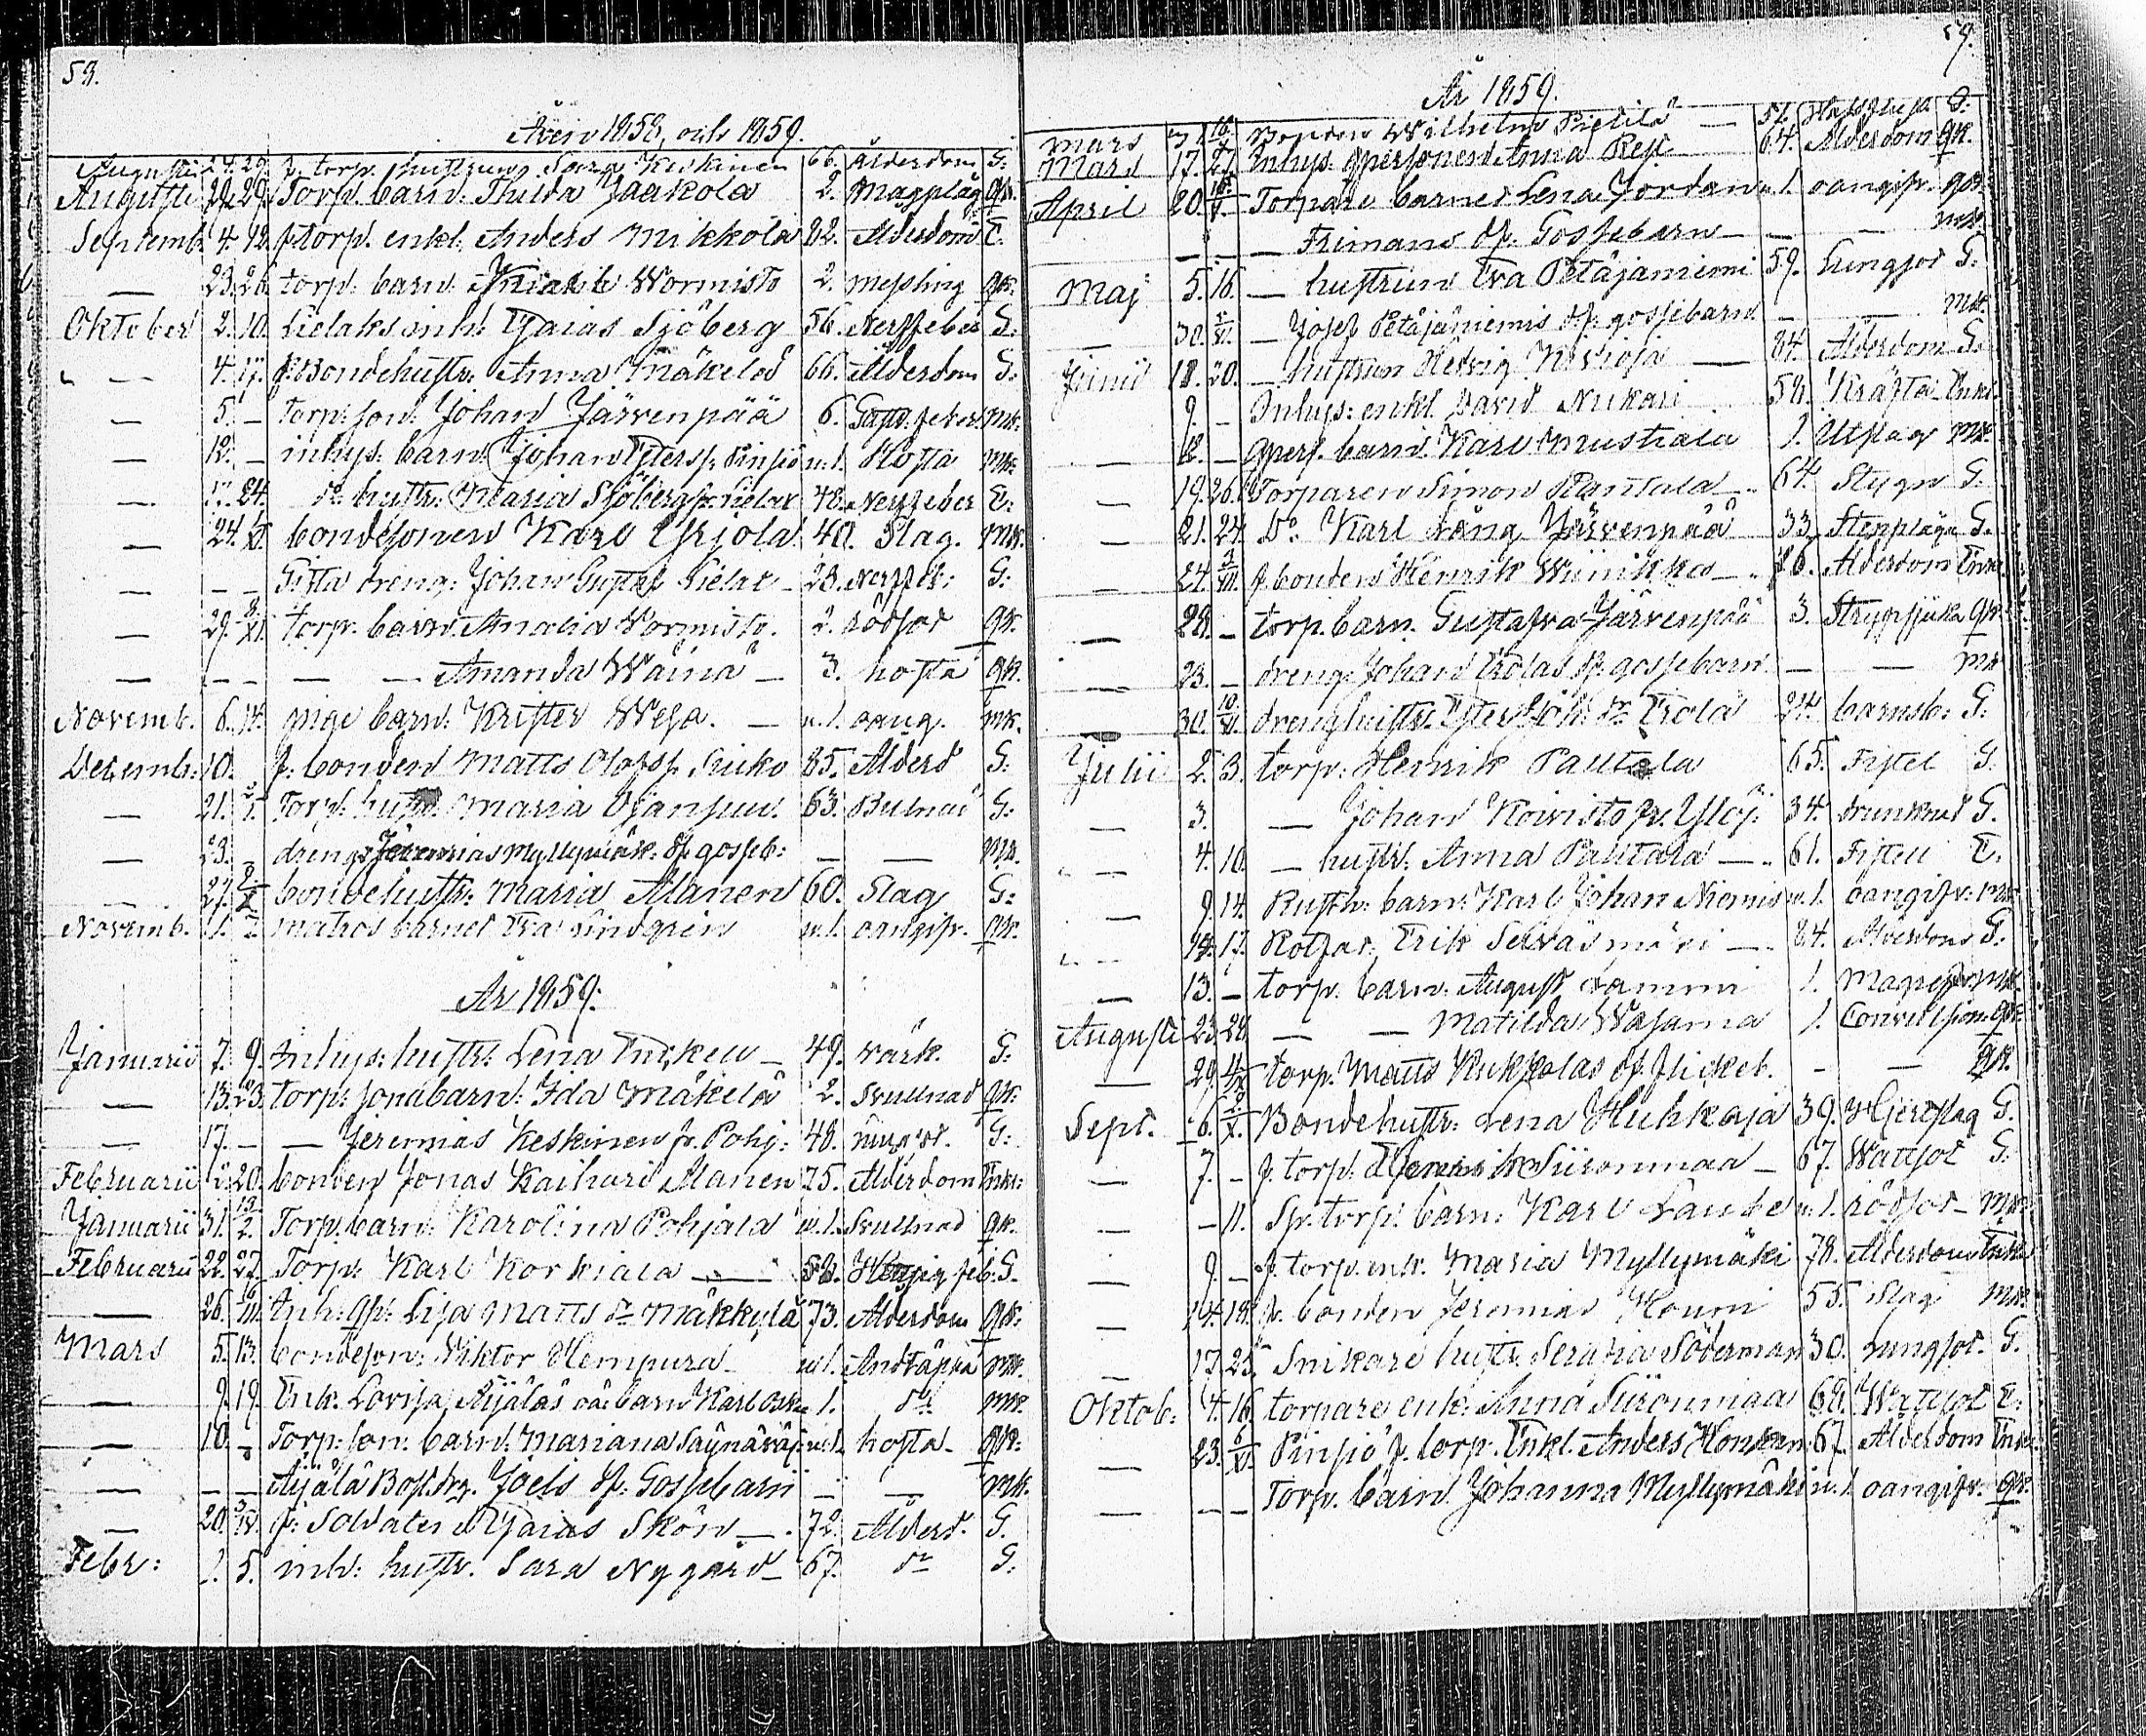 58.
Åren 1858, och 1859.
Augusti 24. 29. f. torp. hustrun Sara Keskinen 66. Ålderdom G.
Augusti 29. Torp. barn. Thilda Jaakola 2. Magplåg qk.
Septemb. 4. 12. f. torp. enkl. Anders Mikkola 82. Ålderdom E.
— 23. 26. torp. barn. Wormisto 2. messling qk.
Oktober 2. 10. Sielaks inh: Esaias Sjöberg 56. Nerffeber G:
— 4. 17. f. Bondehustr. Anna Mäkelä 66. Ålderdom G:
— 5. — Torp. son. Johan Järvenpää 6. feber mk.
— 12. — inhys. barn. Johan Pinsiö u. 1. Hosta mk.
— 17. 24. Do hustr. Maria Sjöberg fr. Sielax 48. Nerffeber E:
— 24. XI. bondesonen Karl Yrjola 40. Slag. mk.
— — — Gifta dreng. Johan Gustaf Sielax 23. Nerffeb: G:
— 29. 8/XI. torp. barn. Amalia Wormisto. 2. rödsot qk.
— — — — — Amanda Wäinä — 3. hosta qk.
Novemb. 6. 14. barn. Krister Wesa. — u. 1. oang. mk.
Decemb. 10. f. bonden Matts Olofss. Suko 85. Ålderd G:
— 21. Torp. hustr. Maria Ojansuu. 63. Bulnad G:
— 23. — drengs Jeremias Myllymäk: df. gosseb: — — mk.
— 27. bondehustr: Maria Alanen 60. Slag G:
Novemb. 1. matros barnet Eva Lindgren u. 1. oangifv. qk.
År 1859.
Januarii 7. 9. Inhys: hustr: Lena — 49. värk. G:
— 13. 23. torp: sonabarn: Ida Mäkelä 2. Svullnad qk:
— 17. — — Jeremias Keskinen fr. Pohj: 48. G:
Februarii 12. 20. bonden Jonas Kaihari Alanen 75. Ålderdom Enkl:
Januarii 31. 13/2. Torp. barn: Karolina Pohjala u. 1. Svullnad qk.
Februarii 22. 27. Torp: Karl Korkiala — 52. feb. G.
— 26. III. Inh: qp: Lisa Matts dr Mäkkylä 73. Ålderdom qk:
Mars 5. 13. bondeson: Viktor Hempura u. 1. Andtäppa mk.
— 9. 19. Enk. Lovisa Äijäläs oä. barn Karl Osk. 1. do mk.
— 10. — Torp: son: barn: Mariana u. 1. hosta qk:
— — — Äijälä Joels df. Gossebarn — — mk.
— 20. 3/IV. f: Soldaten Esaias Skön — 72. Ålderd. G.
Febr: 1. 5. inh: hustr. Sara Nygård 67. do G:
59.
År 1859.
Mars Bonden Wilhelm Pietilä — 51. G.
Mars 17. 27. Inhys. qpersonen Anna 64. Ålderdom qk.
April 20. V. Torpare barnet Lena Jordan u. 1. oangifv. qk.
— — — — Frimans df. Gossebarn — — — mk.
Maj 5. 16. — hustrun Eva Petäjäniemi 59. Lungsot G:
— 30. VI. — Josef Petäjäniemis df. gossebarn — — mk.
Junii 18. 20. — hustrun Hedvig Kivioja — 84. Ålderdom G:
9. — Inhys: enkl. David Niukari 58. Kräfta Enkl.
— 12. — qpers. barn. Karl Mustiala 1. Utslag mk
— 19. 26. Torparen Simon Rantala — 64. Stygn G:
— 21. 24. Do Karl Lång Järvenpää 33. Stenplåga G.
— 24. 3/VII. f. bonden Henrik Wiinikka — 76. Ålderdom Enkl.
— 28. — torp. barn. Gustafva Järvenpää 3. Strypsjuka qk.
— 23. — dreng. Johan Erolas df. gossebarn — — mk
— 30. drenghustr. Ester Joh: dr Erola 24. barnsb: G:
Julii 2. 3. torp: Henrik Pautala 65. Fistel G.
— 3. — Johan Koivisto fr. Ylöj: 34. drunknad G.
— 4. 10. — hustr. Anna Pautala — 61. Fistel E.
— 9. 14. Rusth: barn: Karl Johan Niemis u. 1. oangifv. mk
— 14. 17. Rotfat: Erik — 84. Ålderdom G.
— 13. — torp. barn. August Lammi 1. mk.
Augusti 23. 28. — — Matilda Wasama 1. Convulsion. qk.
— 29. 4/IX torp. Matts Kukkolas df. flickeb. — — qk.
Sept. 6. X. Bondehustr: Lena Huhkaja 39. Hjertslag G.
— 7. — f. torp. Henrik Siironmaa — 67. Wattsot G:
— — 11. Sp. torp. barn: Karl u. 1. rödsot — mk
— 9. — f. torp. enk. Maria Myllymäki 78. Ålderdom Enka
— 14. 18. f. bonden Jeremias Kouni 55. Slag mk.
— 17. 25. Snikare hustr. Serafia Söderman 30. Lungsot. G.
Oktob: 4. 16. torpare enk: Anna Siironmaa 68. Wattsot E:
— 23. 6/XI. Pinsiö f. torp. Enkl. Anders 67. Ålderdom Enkl.
— — — Torp. barn. Johanna Myllymäki u. 1. oangifv. qk.